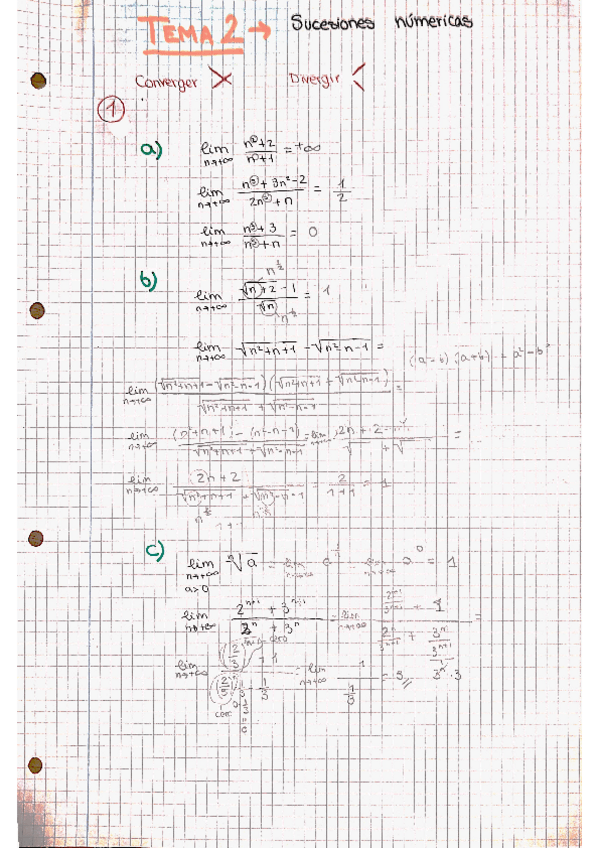 TEMA 2 → Sucesiones númericas
Converger Divergir
1
a) lim n→+∞ n²+2 / n+1 = +∞
lim n→+∞ n³+3n²-2 / 2n³+n = 1/2
lim n→+∞
= 0
b) n^½
lim n→+∞ √n+2 - 1 / √n = 1
n^½
lim n→+∞ √n²+n+1 - √n²-n-1 =
(a-b)·(a+b) = a²-b²
lim n→+∞ (√n²+n+1 - √n²-n-1)(√n²+n+1 + √n²-n-1) / √n²+n+1 + √n²-n-1 =
lim n→+∞ (n²+n+1) - (n²-n-1) / √n²+n+1 + √n²-n-1 = lim 2n+2 / √ + √ =
lim n→+∞ 2n+2 / √n²+n+1 + √n²-n-1 = 2 / 1+1 = 1
c) lim n→+∞ a>0 ⁿ√a = lim = = 1
lim n→+∞ 2ⁿ⁺¹ + 3ⁿ⁺¹ / 2ⁿ + 3ⁿ = lim n→+∞ 2ⁿ⁺¹/3ⁿ⁺¹ + 1 / 2ⁿ/3ⁿ⁺¹ + 3ⁿ/3ⁿ⁺¹ =
3ⁿ·3
lim n→+∞ + 1 / + 1/3 = lim n→+∞ 1 / 1/3 = 3